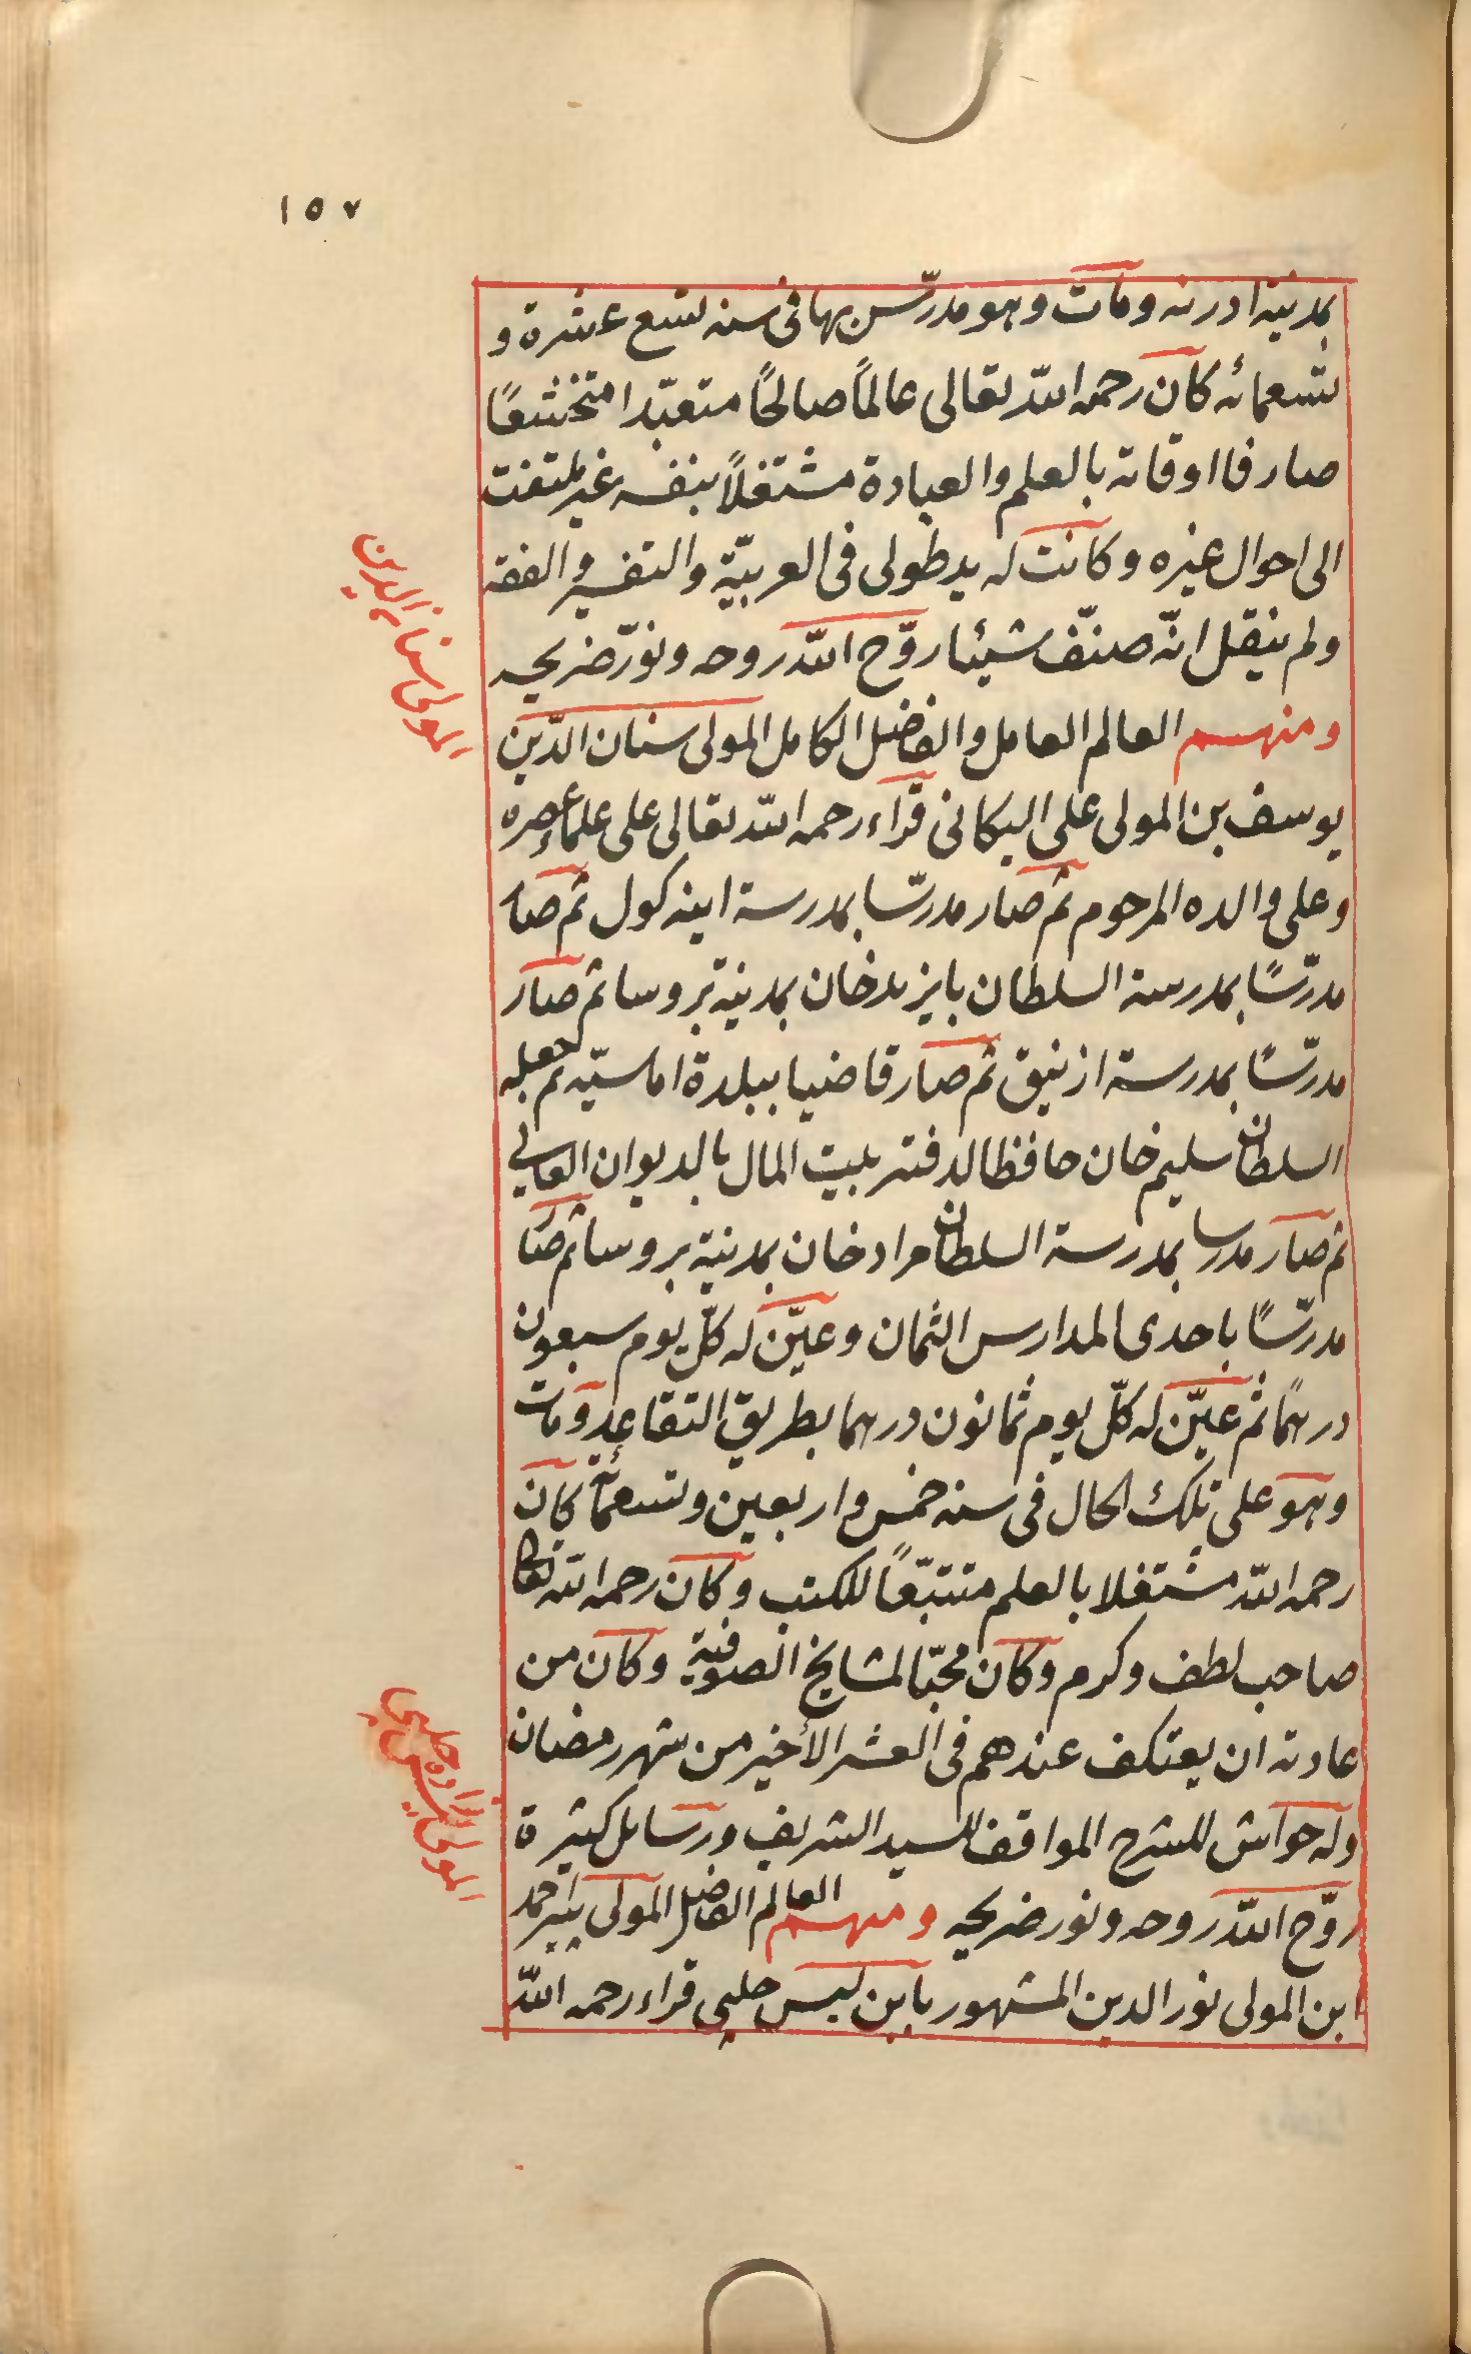 ١٥٧
بمدينة ادرنه ومات وهو مدرّس بها فى سنه تسع عشرة و
تسعمائه كان رحمه اللّه تعالى عالمًا صالحًا متعبّدا متخشعًا
صارفا اوقاته بالعلم والعبادة مشتغلًا بنفسه غير ملتفت
الى احوال غيره وكانت له يد طولى فى العربيّة والتفسير والفقه
ولم ينقل انّه صنّف شيئا روّح اللّه روحه ونوّر ضريحه
ومنهم العالم العامل والفاضل الكامل المولى سنان الدّين
المولى سنان الدين
يوسف بن المولى على اليكانى قراء رحمه اللّه تعالى على علماء عصره
وعلى والده المرحوم ثم صار مدرّسا بمدرسة اينه كول ثم صار
مدرّسًا بمدرسة السلطان بايزيد خان بمدينة بروسا ثم صار
مدرّسًا بمدرسة ازنيق ثم صار قاضيا ببلدة اماسيّه ثم جعله
السلطان سليم خان حافظا لدفتر بيت المال بالديوان العالى
ثم صار مدرسا بمدرسة السلطان مراد خان بمدينة بروسا ثم صار
مدرّسًا باحدى المدارس الثمان وعيّن له كلّ يوم سبعون
درهمًا ثم عيّن له كلّ يوم ثمانون درهما بطريق التقاعد ومات
وهو على تلك الحال فى سنه خمس واربعين وتسعمائة كان
رحمه اللّه مشتغلا بالعلم متتبّعًا للكتب وكان رحمه اللّه تعالى
صاحب لطف وكرم وكان محبّا لمشايخ الصوفية وكان من
عادته ان يعتكف عندهم فى العشر الأخير من شهر رمضان
وله حواش للشرح المواقف للسيد الشريف ورسايل كثيرة
روّح اللّه روحه ونور ضريحه ومنهم العالم الفاضل المولى پير احمد
بن المولى نور الدين المشهور بابن ليس چلپى قراء رحمه اللّه